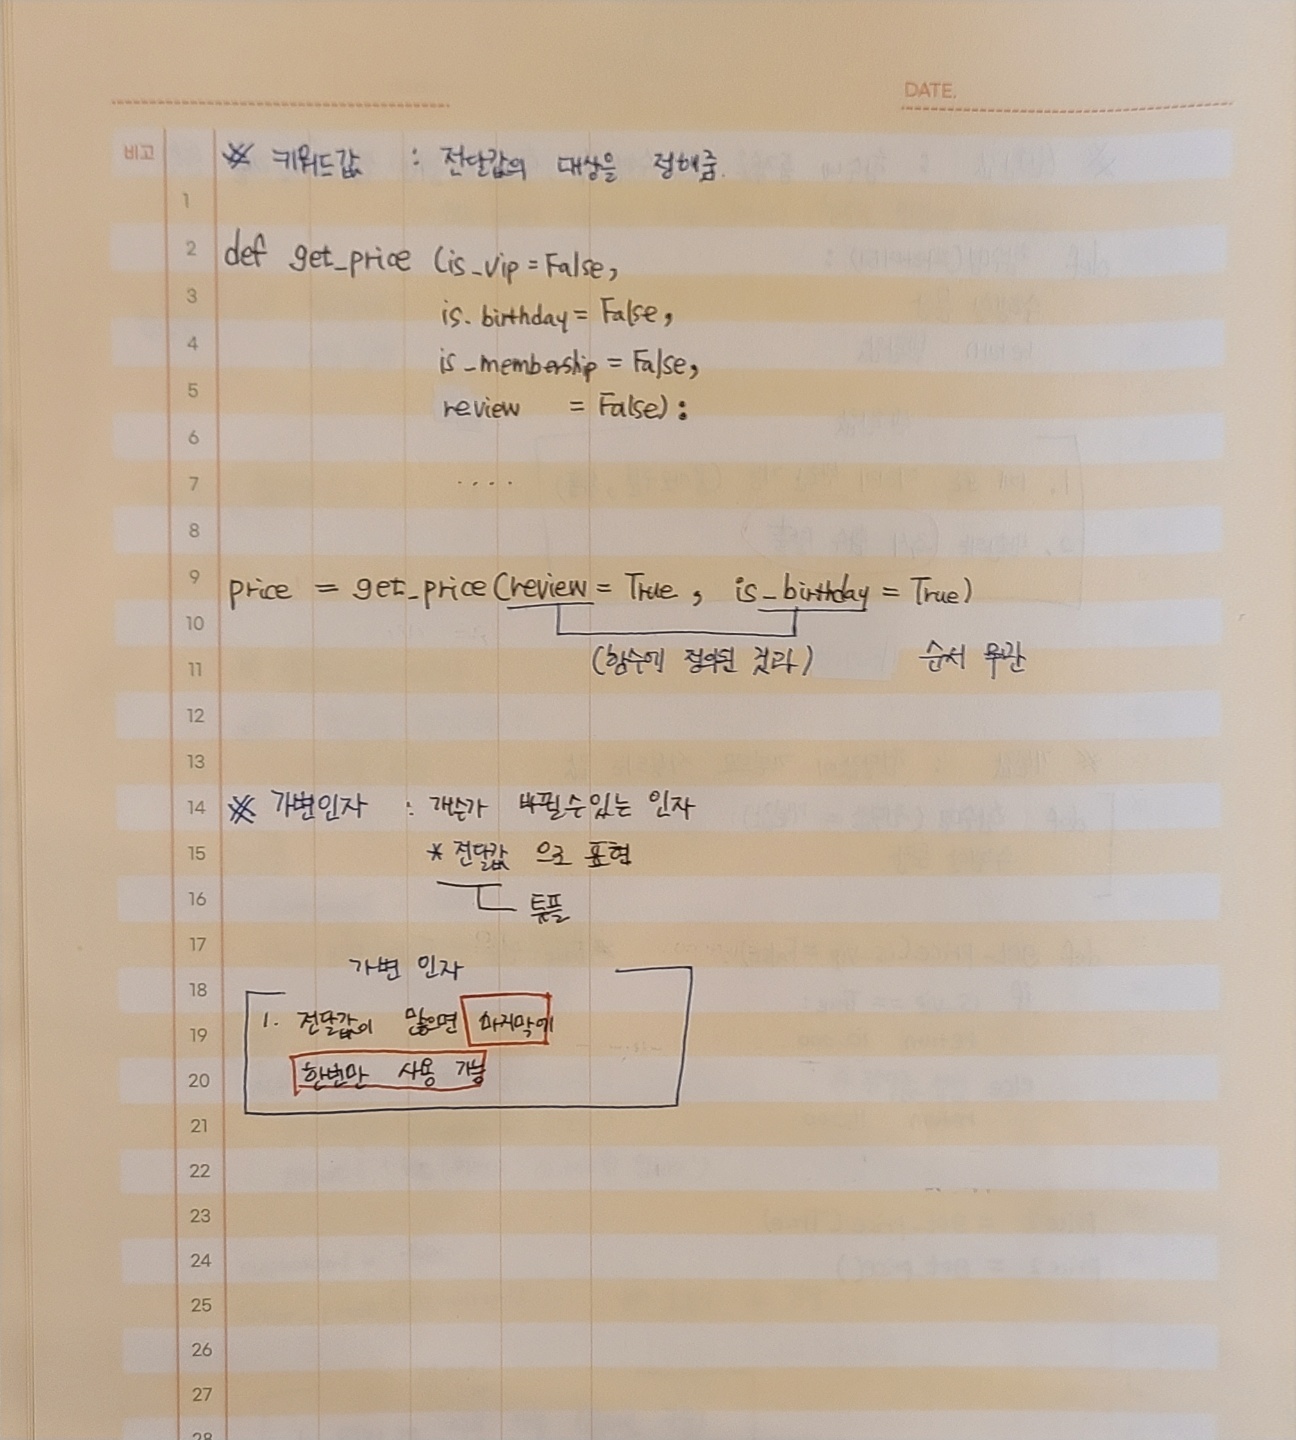 DATE.
비고
※ 키워드값 : 전달값의 대상을 정해줌.
1
2 def get_price (is_vip = False,
3 is_birthday = False,
4 is_membership = False,
5 review = False) :
6
7 ....
8
9 price = get_price (review = True , is_birthday = True)
10
11 (함수에 정의된 것과) 순서 무관
12
13
14 ※ 가변인자 : 개수가 바뀔수있는 인자
15 * 전달값 으로 표현
16 튜플
17
가변 인자
18
19 1. 전달값이 많으면 마지막에
20 한번만 사용 가능
21
22
23
24
25
26
27
28